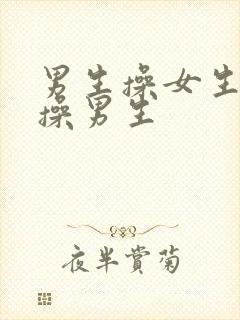 男生操女生
操男生
夜半赏菊